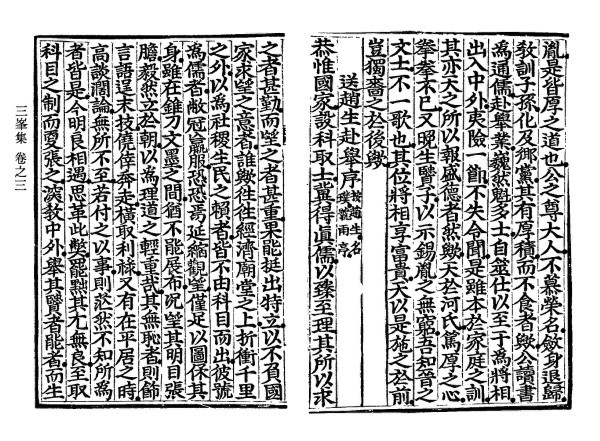 胤是皆厚之道也公之尊大人不慕榮名斂身退歸
敎訓子孫化及鄕黨其有厚積而不食者歟公讀書
爲通儒赴擧業巍然魁多士自筮仕以至于爲將相
出入中外夷險一節不失令聞是雖本於家庭之訓
其亦天之所以報盛德者然歟天於河氏篤厚之心
拳拳不已又晩生賢子以示錫胤之無窮吾知晉之
文士不一歌也其位將相享富貴天以是施之於前
豈獨嗇之於後歟
送趙生赴擧序 按趙生名璞號雨亭
恭惟國家設科取士冀得眞儒以臻至理其所以求
之者甚勤而望之者甚重果能挺出特立以不負國
家求望之意者誰歟往往經濟廟堂之上折衝千里
之外以爲社稷生民之賴者皆不由科目而出彼號
爲儒者敝冠羸服恐恐焉延縮觀望僅足以圖保其
身雖在錐刀文墨之間猶不能展布况望其明目張
膽毅然立於朝以爲理道之輕重哉其無恥者則飾
言語逞末技僥倖奔走橫取利祿又有在平居之時
高談闊論無所不至若付之以事則茫然不知所爲
者皆是今明良相遇思革此弊旣罷黜其尤無良至取
科目之制而更張之演敎中外擧其賢者能者而生
三峯集 卷之三